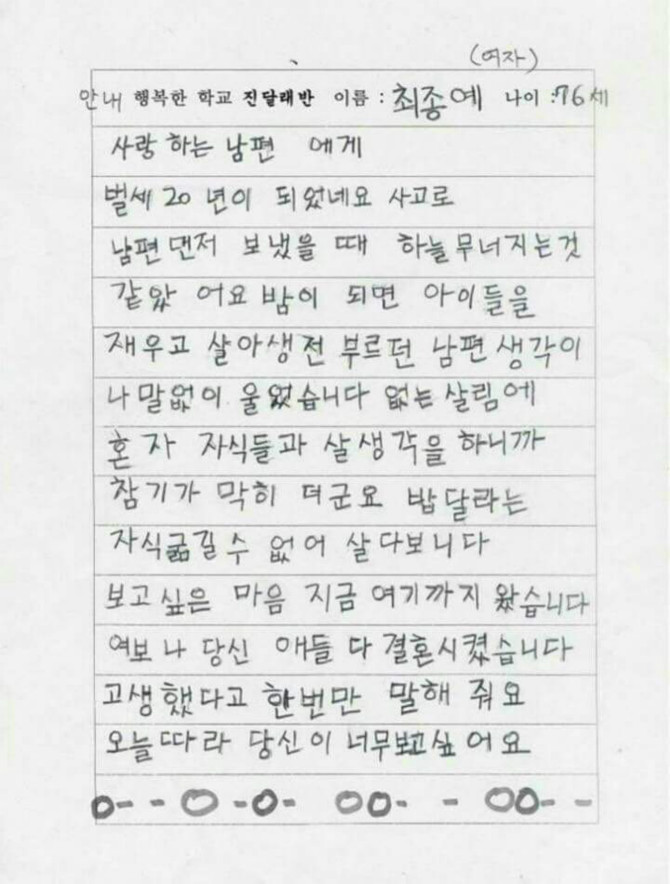 (여자)
안내 행복한 학교 진달래반 이름 : 최종예 나이 :76세
사랑 하는 남편 에게
벌세 20 년이 되었네요 사고로
남편 먼저 보냈을 때 하늘무너지는것
같았 어요 밤이 되면 아이들을
재우고 살아생전 부르던 남편 생각이
나 말없이 울었습니다 없는 살림에
혼자 자식들과 살생각을 하니까
참기가 막히 더군요 밥달라는
자식굶길수 없어 살다보니다
보고싶은 마음 지금 여기까지 왔습니다
여보 나 당신 애들 다 결혼시켰습니다
고생했다고 한번만 말해 줘요
오늘따라 당신이 너무보고싶 어요